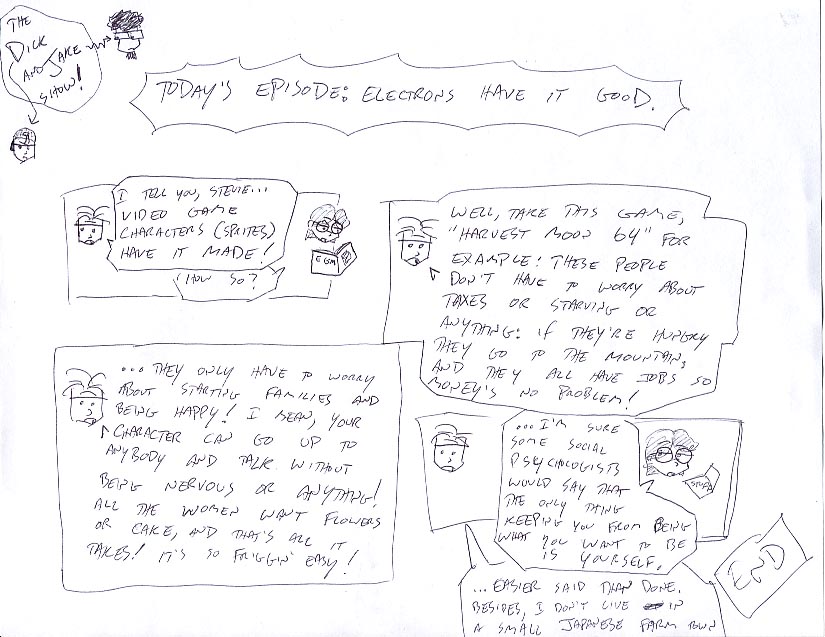 THE
DICK
AND JAKE
SHOW!
TODAY'S EPISODE: ELECTRONS HAVE IT GOOD.
I TELL YOU, STEVIE...
VIDEO GAME
CHARACTERS (SPRITES)
HAVE IT MADE!
HOW SO?
EGM
WELL, TAKE THIS GAME,
"HARVEST MOON 64" FOR
EXAMPLE! THESE PEOPLE
DON'T HAVE TO WORRY ABOUT
TAXES OR STARVING OR
ANYTHING: IF THEY'RE HUNGRY
THEY GO TO THE MOUNTAIN,
AND THEY ALL HAVE JOBS SO
MONEY'S NO PROBLEM!
...THEY ONLY HAVE TO WORRY
ABOUT STARTING FAMILIES AND
BEING HAPPY! I MEAN, YOUR
CHARACTER CAN GO UP TO
ANYBODY AND TALK WITHOUT
BEING NERVOUS OR ANYTHING!
ALL THE WOMEN WANT FLOWERS
OR CAKE, AND THAT'S ALL IT
TAKES! IT'S SO FRIGGIN' EASY!
...I'M SURE
SOME SOCIAL
PSYCHOLOGISTS
WOULD SAY THAT
THE ONLY THING
KEEPING YOU FROM BEING
WHAT YOU WANT TO BE
IS YOURSELF.
...EASIER SAID THAN DONE.
BESIDES, I DON'T LIVE IN
A SMALL JAPANESE FARM TOWN
END